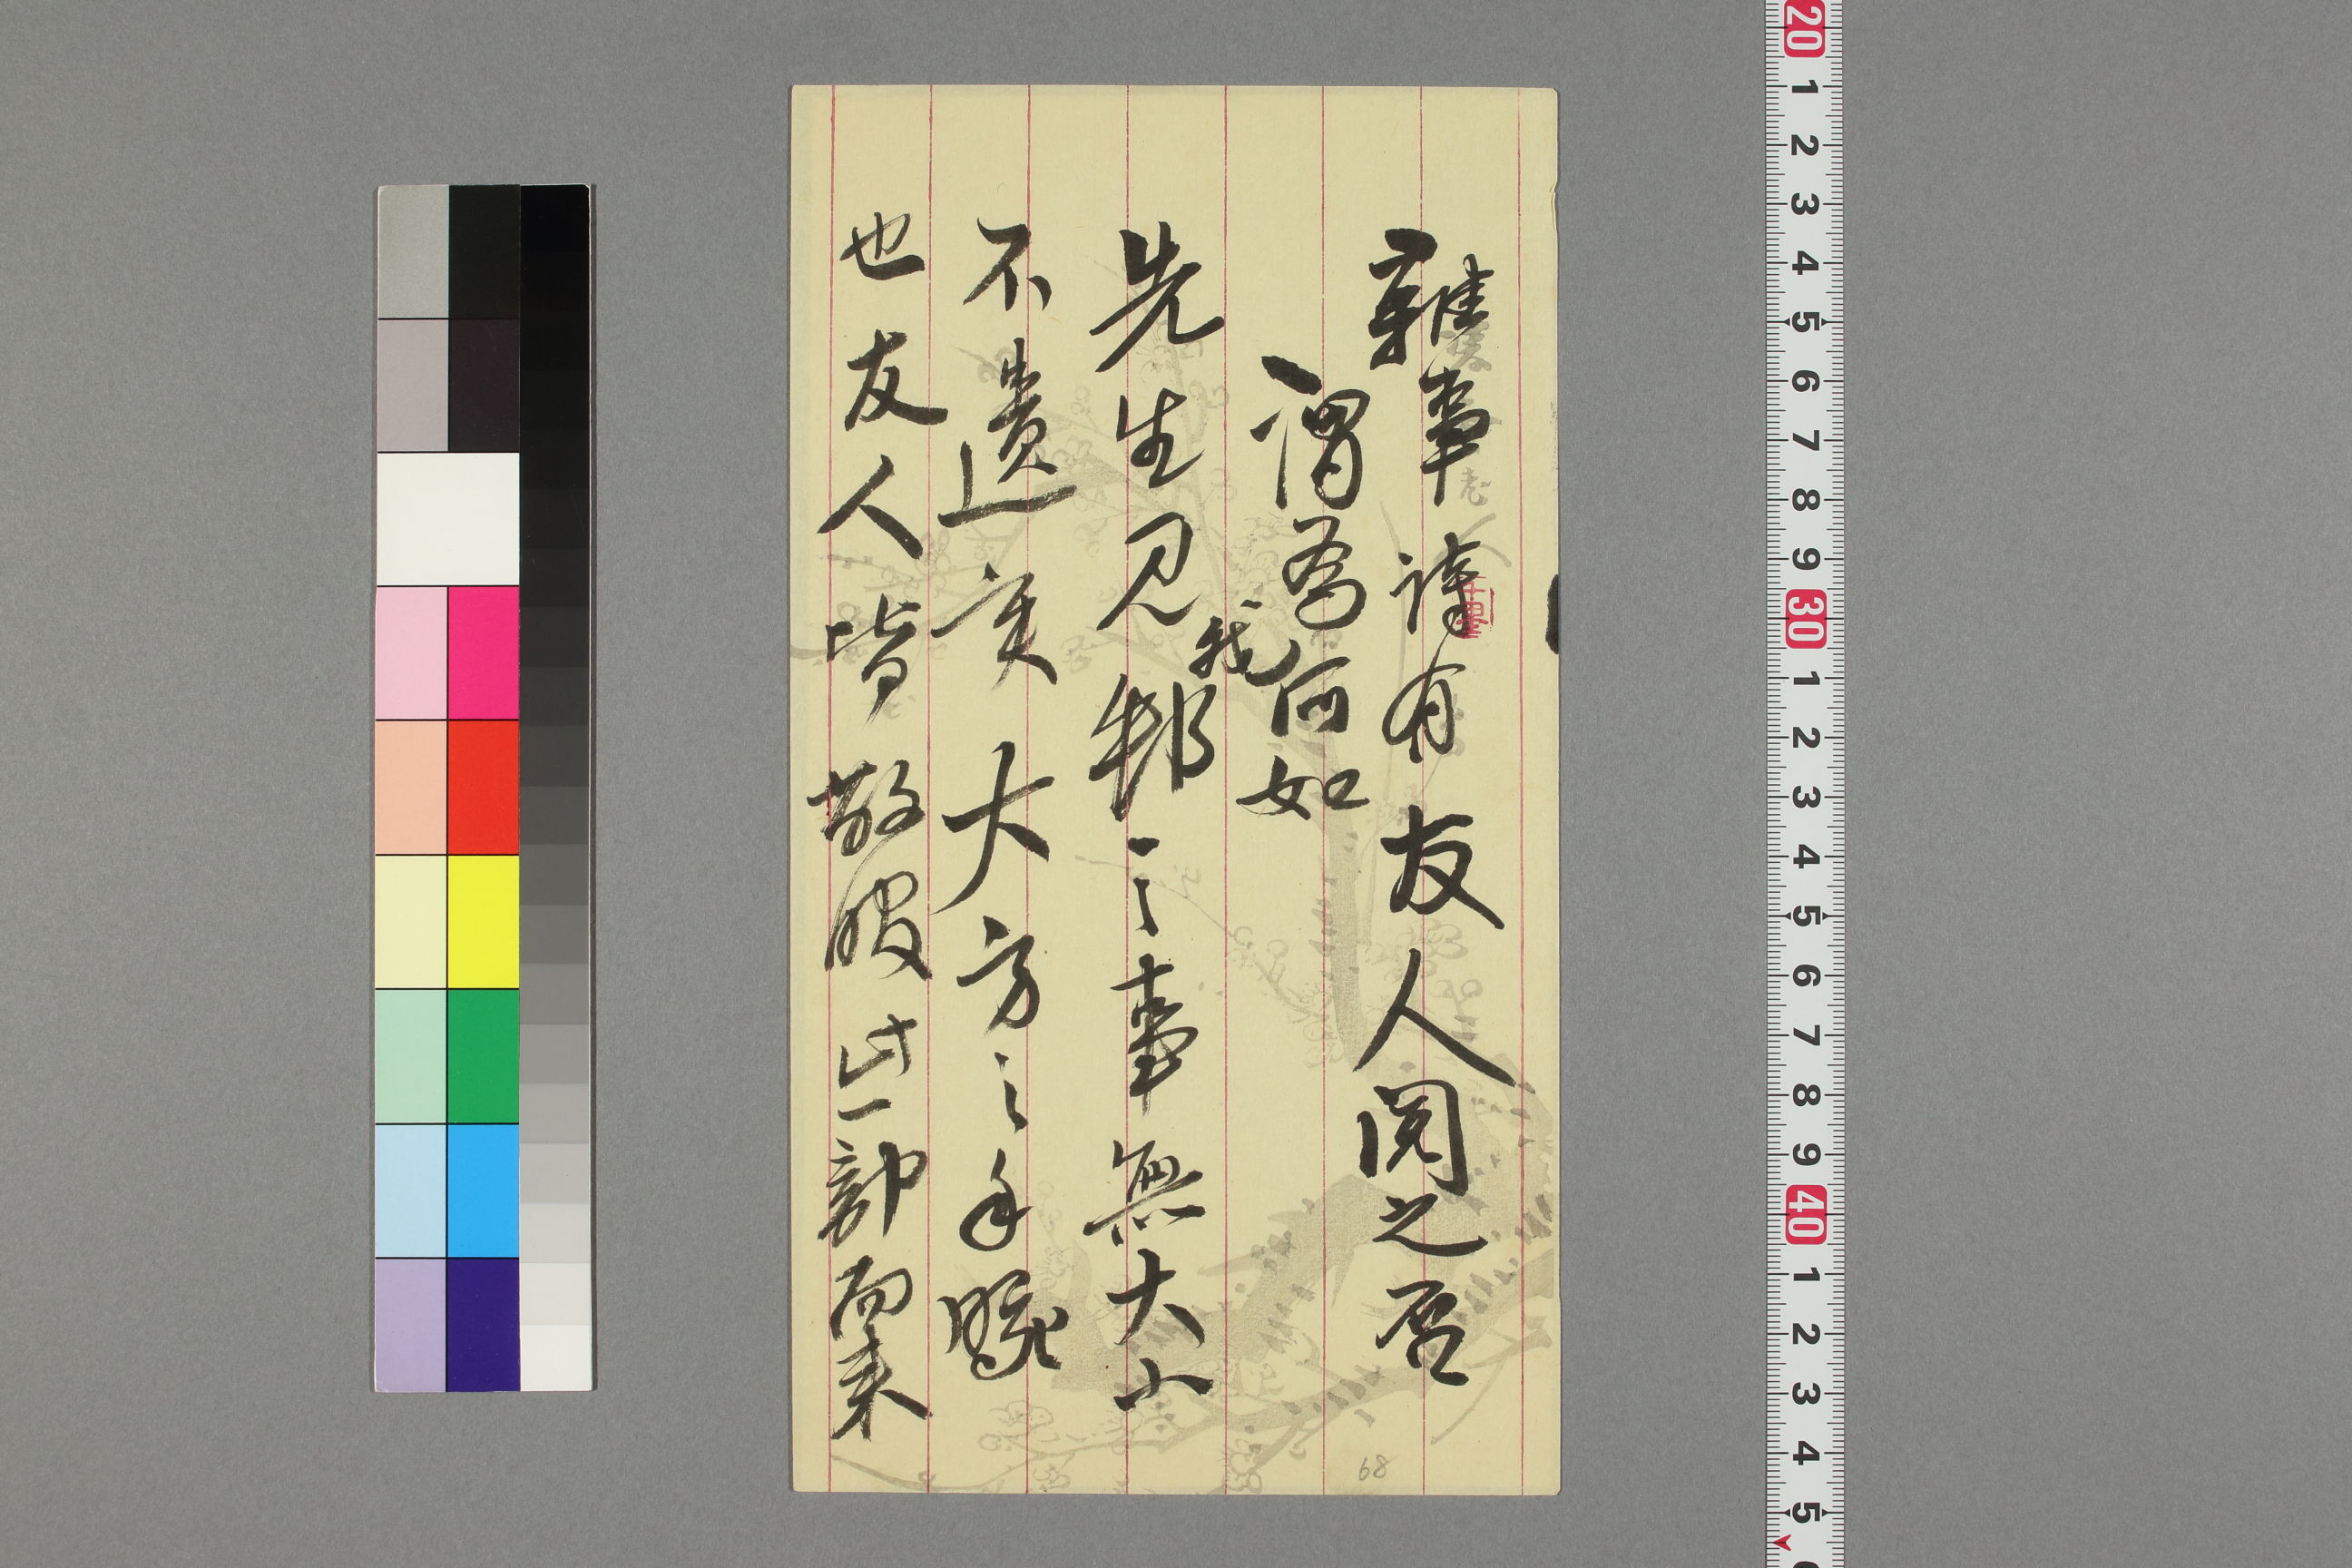 雜事詩有友人閱之否
謂為何如
先生見我邦之事無大小
不遺實大方之手腕
也友人皆敬服此一部而來
68
20 1 2 3 4 5 6 7 8 9 30 1 2 3 4 5 6 7 8 9 40 1 2 3 4 5